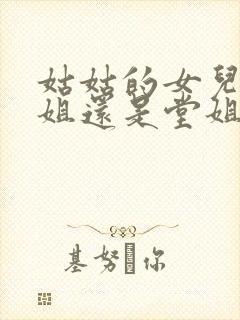 姑姑的女兒
姐還是堂姐
基努 你